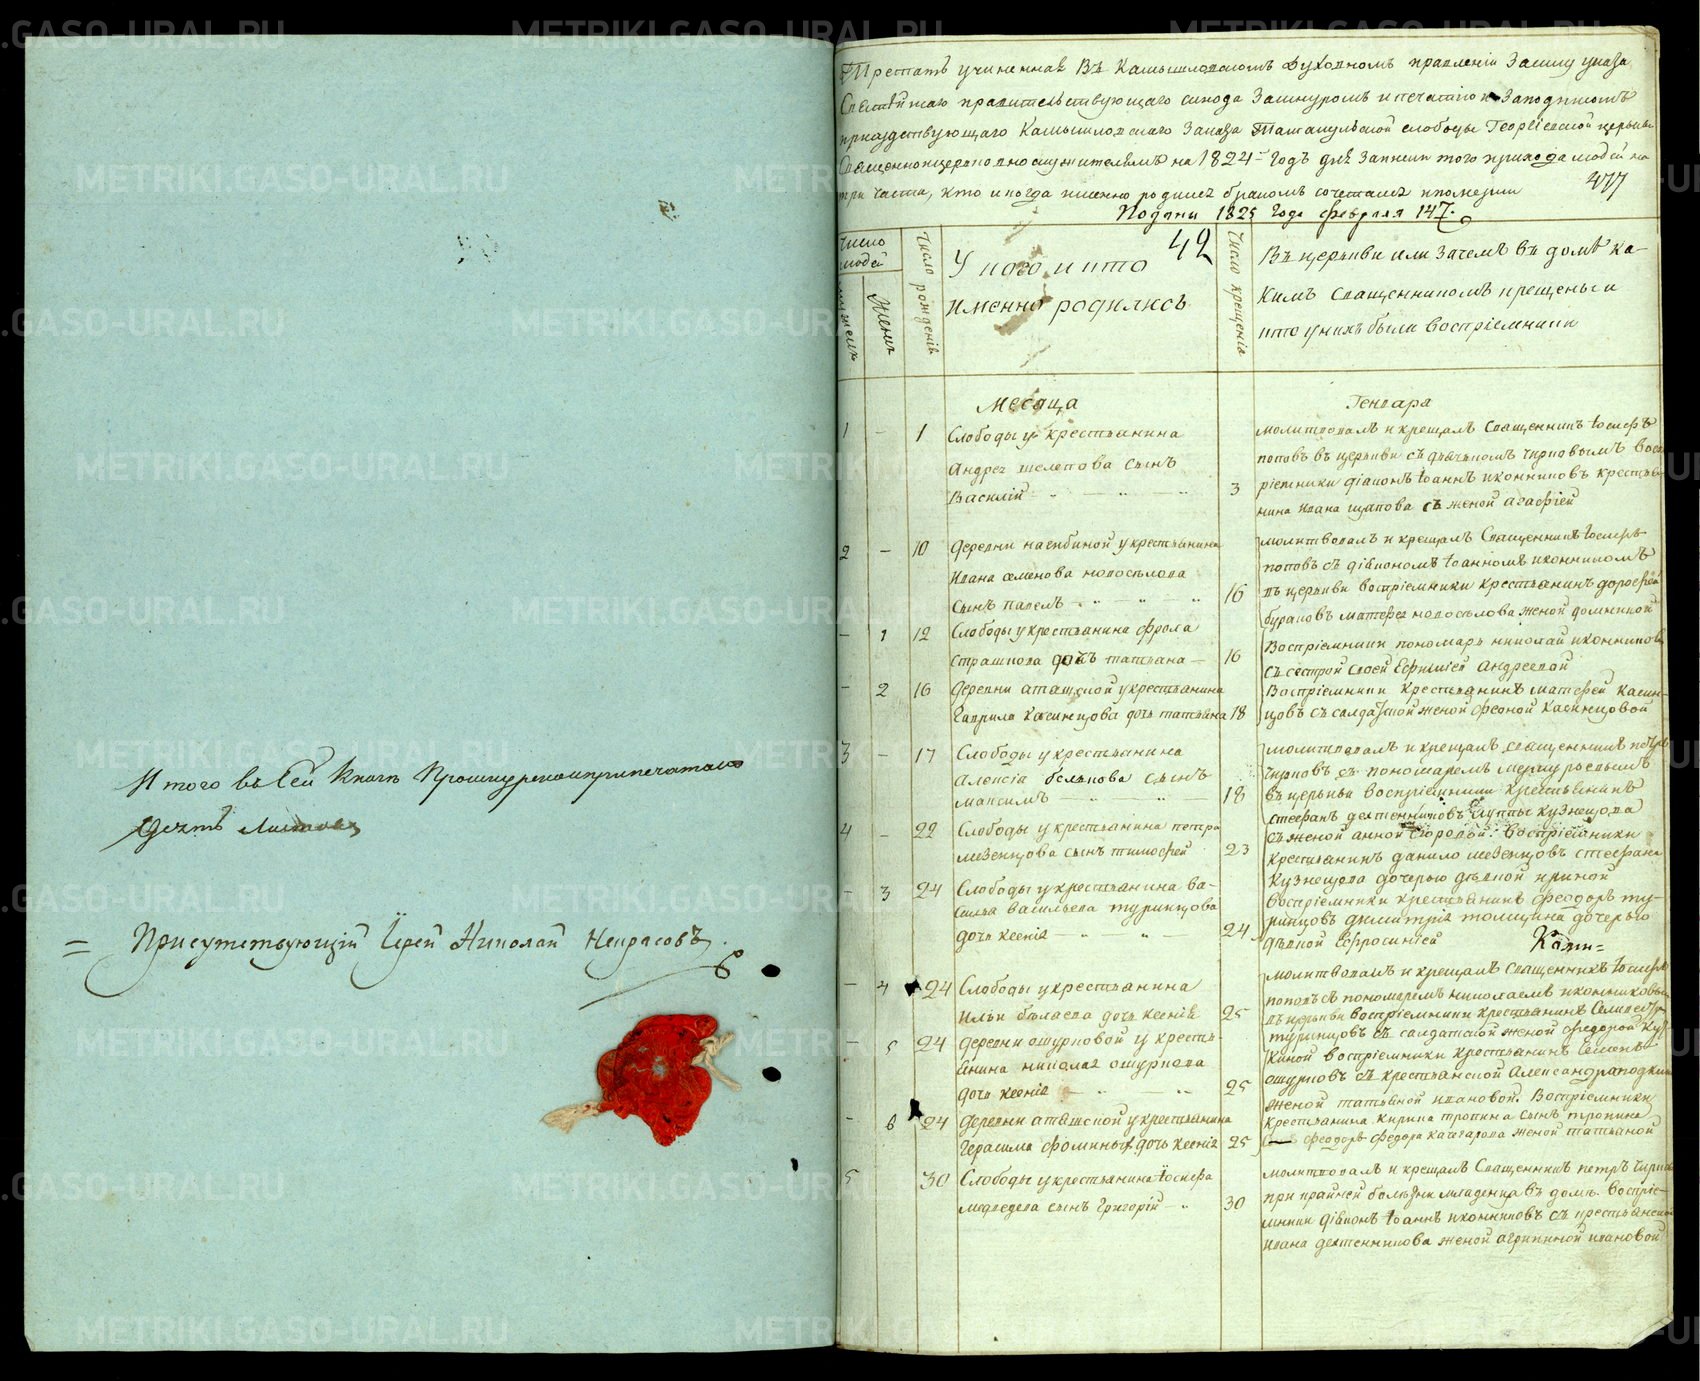 Итого въ сей книге прошнурено и припечатано
десть листовъ
Присутствующій Іерей Николай Некрасовъ.
Тетрать учиненная въ Камышловскомъ духовномъ правленіи Засилу указа
Святейшаго правительствующаго синода Зашнуромъ и печатію и Заподписомъ
присудствующаго Камышловскаго Заказа слободы Георгіевской церькви
Священноцерьковнослужителямъ на 1824 годъ для Записки того прихода людей на
три части, кто и когда имянно родился бракомъ сочетался и померли 477
Подана 1825 года февраля 147.
Число людей
мужескъ
Женскъ
Число рожденія
У кого и кто 42
именно родились
Число крещенія
Въ церькви или Зачемъ въ доме ка-
кимъ священникомъ крещены и
кто у нихъ были восприемники
Месяца Генваря
1 - 1 Слободы у крестьянина
Андрея шелепова сынъ
Василій 3
молитвовалъ и крещалъ Священникъ Іосифъ
поповъ въ церькви съ дьячкомъ чирковымъ восп
ріемники діаконъ Іоаннъ иконниковъ крестья
нина Ивана щапова съ женой агафіей
2 - 10 деревни насибиной у крестьянина
Ивана семенова новоселова
сынъ павелъ 16
молитвовалъ и крещалъ Священникъ Іосифъ
поповъ съ діакономъ Іоанномъ иконниковъ
въ церькви восприемники крестьянинъ дорофей
бураковъ матфея новоселова женой домникой
- 1 12 Слободы у крестьянина фрола
страшкова дочь татьяна 16
Восприемники пономарь николай иконниковъ
съ сестрой своей Ефимией Андреевой
- 2 16 деревни аташской у крестьянина
Гаврила Касинцова дочь татьяна 18
Восприемники крестьянинъ матфей касин-
цовъ съ салдатской женой феоной Касинцовой
3 - 17 Слободы у крестьянина
Алексія белькова сынъ
максимъ 18
молитвовалъ и крещалъ священникъ петръ
чирковъ съ пономаремъ меркурьевымъ
въ церькви восприемники крестьянинъ
стефанъ Кузнецова
съ женой анной восприемники
4 - 22 Слободы у крестьянина петра
мезенцова сынъ тимофей 23
крестьянинъ данило мезенцовъ стефана
Кузнецова дочерью девкой ириной
- 3 24 Слободы у крестьянина ва-
силья васильева туринцова
дочь ксенія 24
восприемники крестьянинъ феодоръ ту-
ринцовъ димитрія толщина дочерью
девкой ефросиніей
- 4 24 Слободы у крестьянина
Ильи беляева дочь ксенія 25
молитвовалъ и крещалъ Священникъ Іосифъ
поповъ съ пономаремъ николаемъ иконниковы
въ церькви восприемники крестьянинъ
туринцовъ съ салдатской женой федорой
- 5 24 деревни ошурковой у кресть-
янина николая ошуркова
дочь ксенія 25
восприемники крестьянинъ Семенъ
ошурковъ съ крестьянской
женой татьяной ивановой. Восприемники
- 6 24 деревни аташской у крестьянина
Герасима фоминых дочь ксенія 25
крестьянина Кирила тропина сынъ тропина
феодоръ федора женой татьяной
5 30 Слободы у крестьянина Іосифа
медведева сынъ Григорій 30
молитвовалъ и крещалъ Священникъ петръ чирковъ
при крайней болезни младенца въ доме. воспріе-
мники діаконъ Іоаннъ иконниковъ съ крестьянской
ивана женой агрипиной ивановой